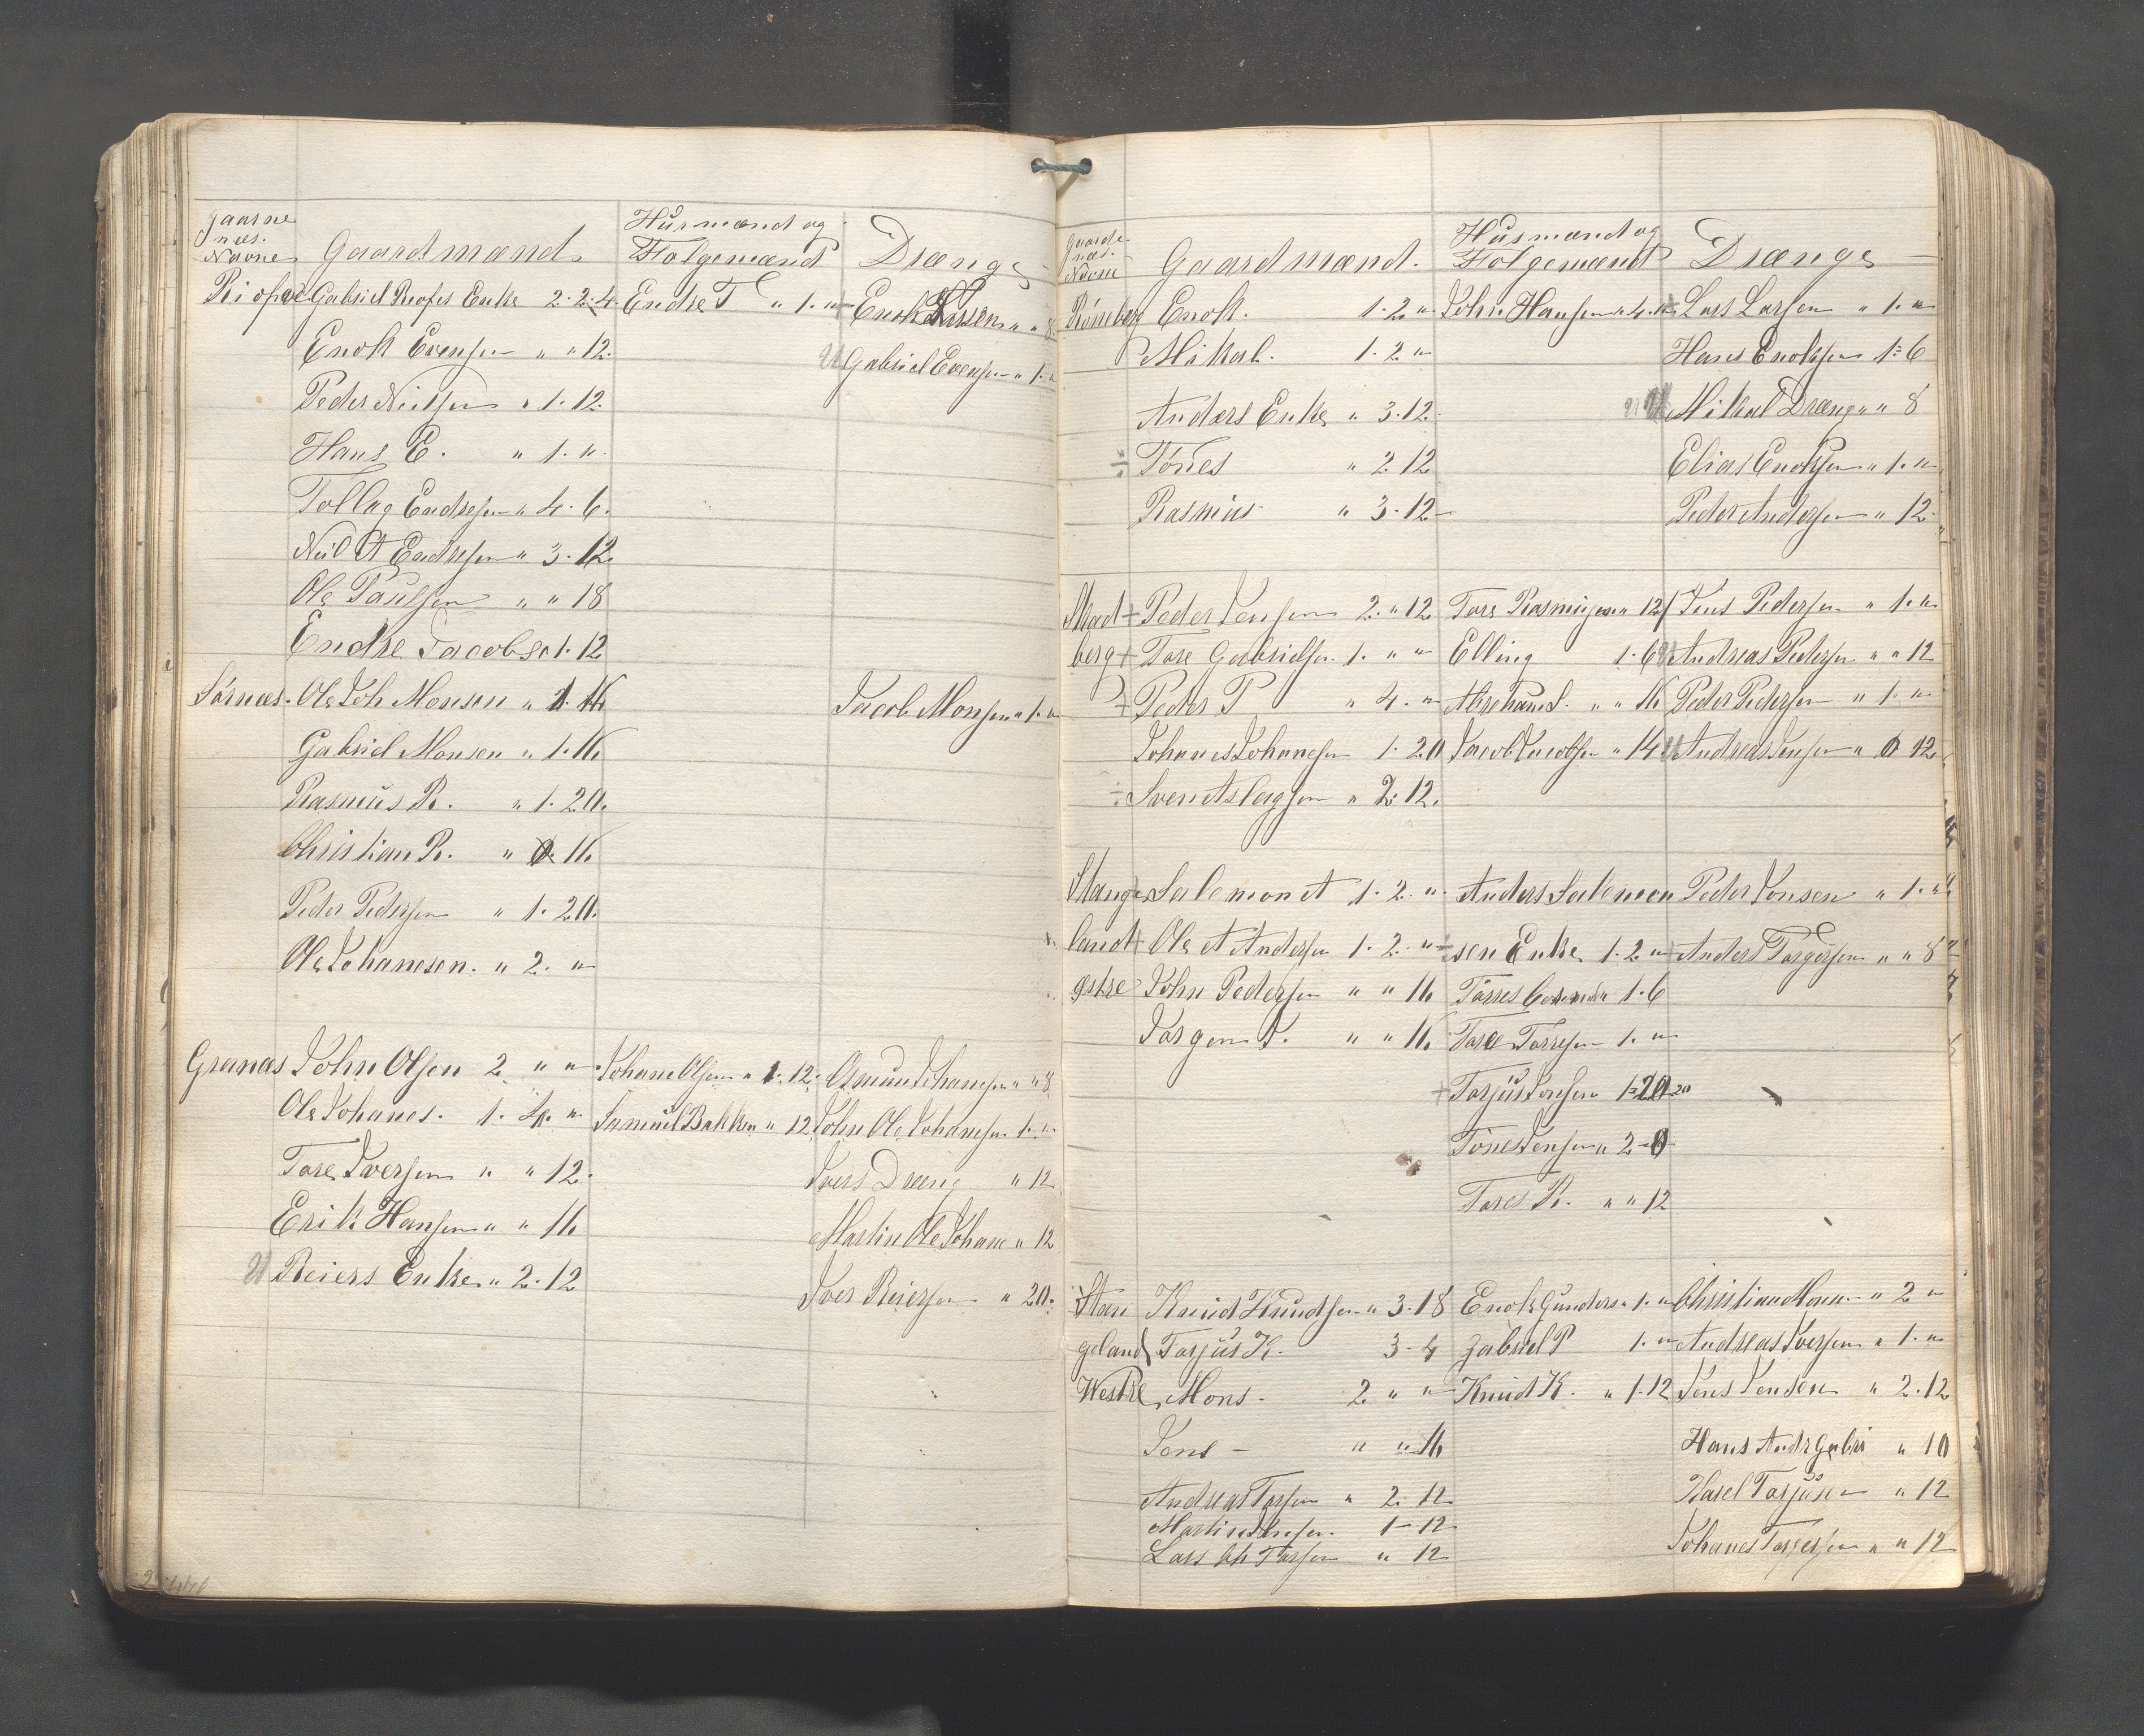 Gaarne Husmænd og
næs.
Navne Gaardmænd Folgemænd Drænge
Gabriel Enke 2. 2. 4. Endre T " 1. " Enok " " 8
Enok Evensen " " 12. Gabriel Evensen " 1. "
Peder Neilsen " 1. 12.
Hans E. " 1. "
Tollag Endresen " 4. 6.
Nil A Endresen " 3. 12.
Ole Paulsen " " 18
Endre Jacobsen 1. 12
Sörnæs. Ole Joh Monsen " 1. 16 Jacob Monsen " 1. "
Gabriel Monsen " 1. 16.
Rasmus R. " 1. 20.
Christian R. " 0. 16.
Peder Pedersen " 1. 20.
Ole Johanesen. " 2. "
Grenæs John Olsen 2. " " Johane Olsen " 1. 12. Johanesen " " 8
Ole Johanes. 1. 4. " Samuel Bakken " 12 John Ole Johanesen 1. "
Tore Iversen " " 12. Ivers Dræng " 12
Erik Hansen " " 16 Martin Ole Johane " 12
Reiers Enke " 2. 12 Iver Reiersen " 20.
Gaarde Husmænd og
næs.
Navne Gaardmænd. Folgemænd Drænge
Rönneberg Enok. 1. 2 " John Hansen " 4. " Lars Larsen " 1. "
Mikal. 1. 2 " Hans Enoksen 1. 6
Anders Enke " 3. 12. Mikal Dræng " " 8
÷ Tönes " 2. 12 Elias Enoksen " 1. "
Rasmus " 3. 12 Peder Andersen " 12
Skad + Peder Jensen 2. " 12 Tore Rasmusen " 12 Jens Pedersen " 1. "
berg + Tore Gabrielsen 1. " " Elling 1. 6 Andreas Pedersen " " 12
÷ Peder P " 4. " Abraham S. " " 16 Peder Pedersen " 1. "
Johanes Johanesen 1. 20 Jacob Jacobsen " 14 Andreas Jensen " 0 12
÷ Sven Aslagsen " 2. 12.
Stange Salemon A 1. 2. " Anders Salemon Peder Jonsen " 1. "
land + Ole A Andersen 1. 2. " sen Enke 1. 2 " Anders Torgersen " " 8
östre John Pedersen " " 16 Törres 1. 6
Jörgen J. " " 16. Tore Torresen 1. "
+ Torjus Jonsen 1. 20 20
Tönes Jensen " 2 - 0
Tores R. " " 12
Stan Knud Knudsen " 3. 18 Enok Gunders " 1. " Christian Mons " 2 "
geland Torjus K. 3 - 4 Gabriel P 1. " Andreas Iversen " 1. "
Westre Mons. 2 " " Knud K. " 1. 12 Jens Jensen " 2. 12
Jens - " " 16 Hans Andr Gabri " 10
Andreas Torsen " 2. 12 Torjusen " 12
Martin 1 - 12 Johanes Torgersen " " 12
Lars Torsen " 12